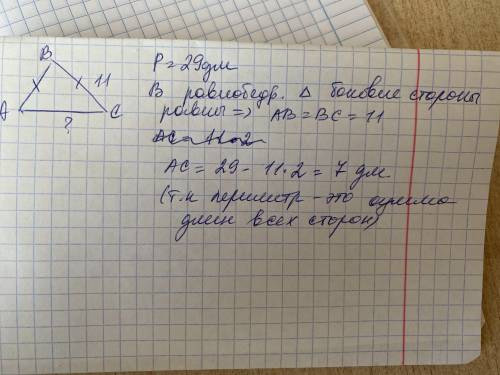 B
11
A
C
?
P = 29 дм
В равнобедр. △ боковые стороны
равны => AB = BC = 11
AC = 11·2
AC = 29 - 11·2 = 7 дм
(т.к периметр - это сумма
длин всех сторон)